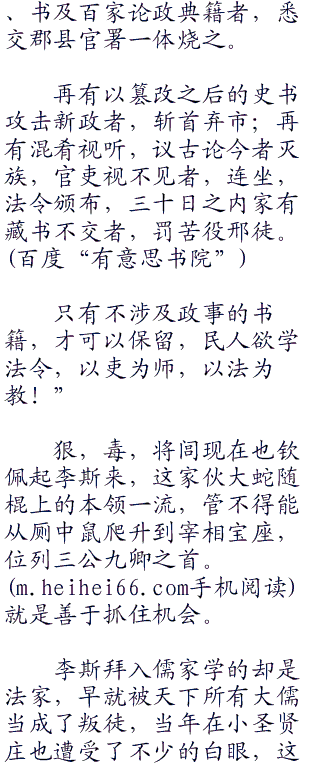 、书及百家论政典籍者，悉
交郡县官署一体烧之。
再有以篡改之后的史书
攻击新政者，斩首弃市；再
有混肴视听，议古论今者灭
族，官吏视不见者，连坐，
法令颁布，三十日之内家有
藏书不交者，罚苦役邢徒。
(百度“有意思书院”)
只有不涉及政事的书
籍，才可以保留，民人欲学
法令，以吏为师，以法为
教！”
狠，毒，将闾现在也钦
佩起李斯来，这家伙大蛇随
棍上的本领一流，管不得能
从厕中鼠爬升到宰相宝座，
位列三公九卿之首。
(m.heihei66.com手机阅读)
就是善于抓住机会。
李斯拜入儒家学的却是
法家，早就被天下所有大儒
当成了叛徒，当年在小圣贤
庄也遭受了不少的白眼，这